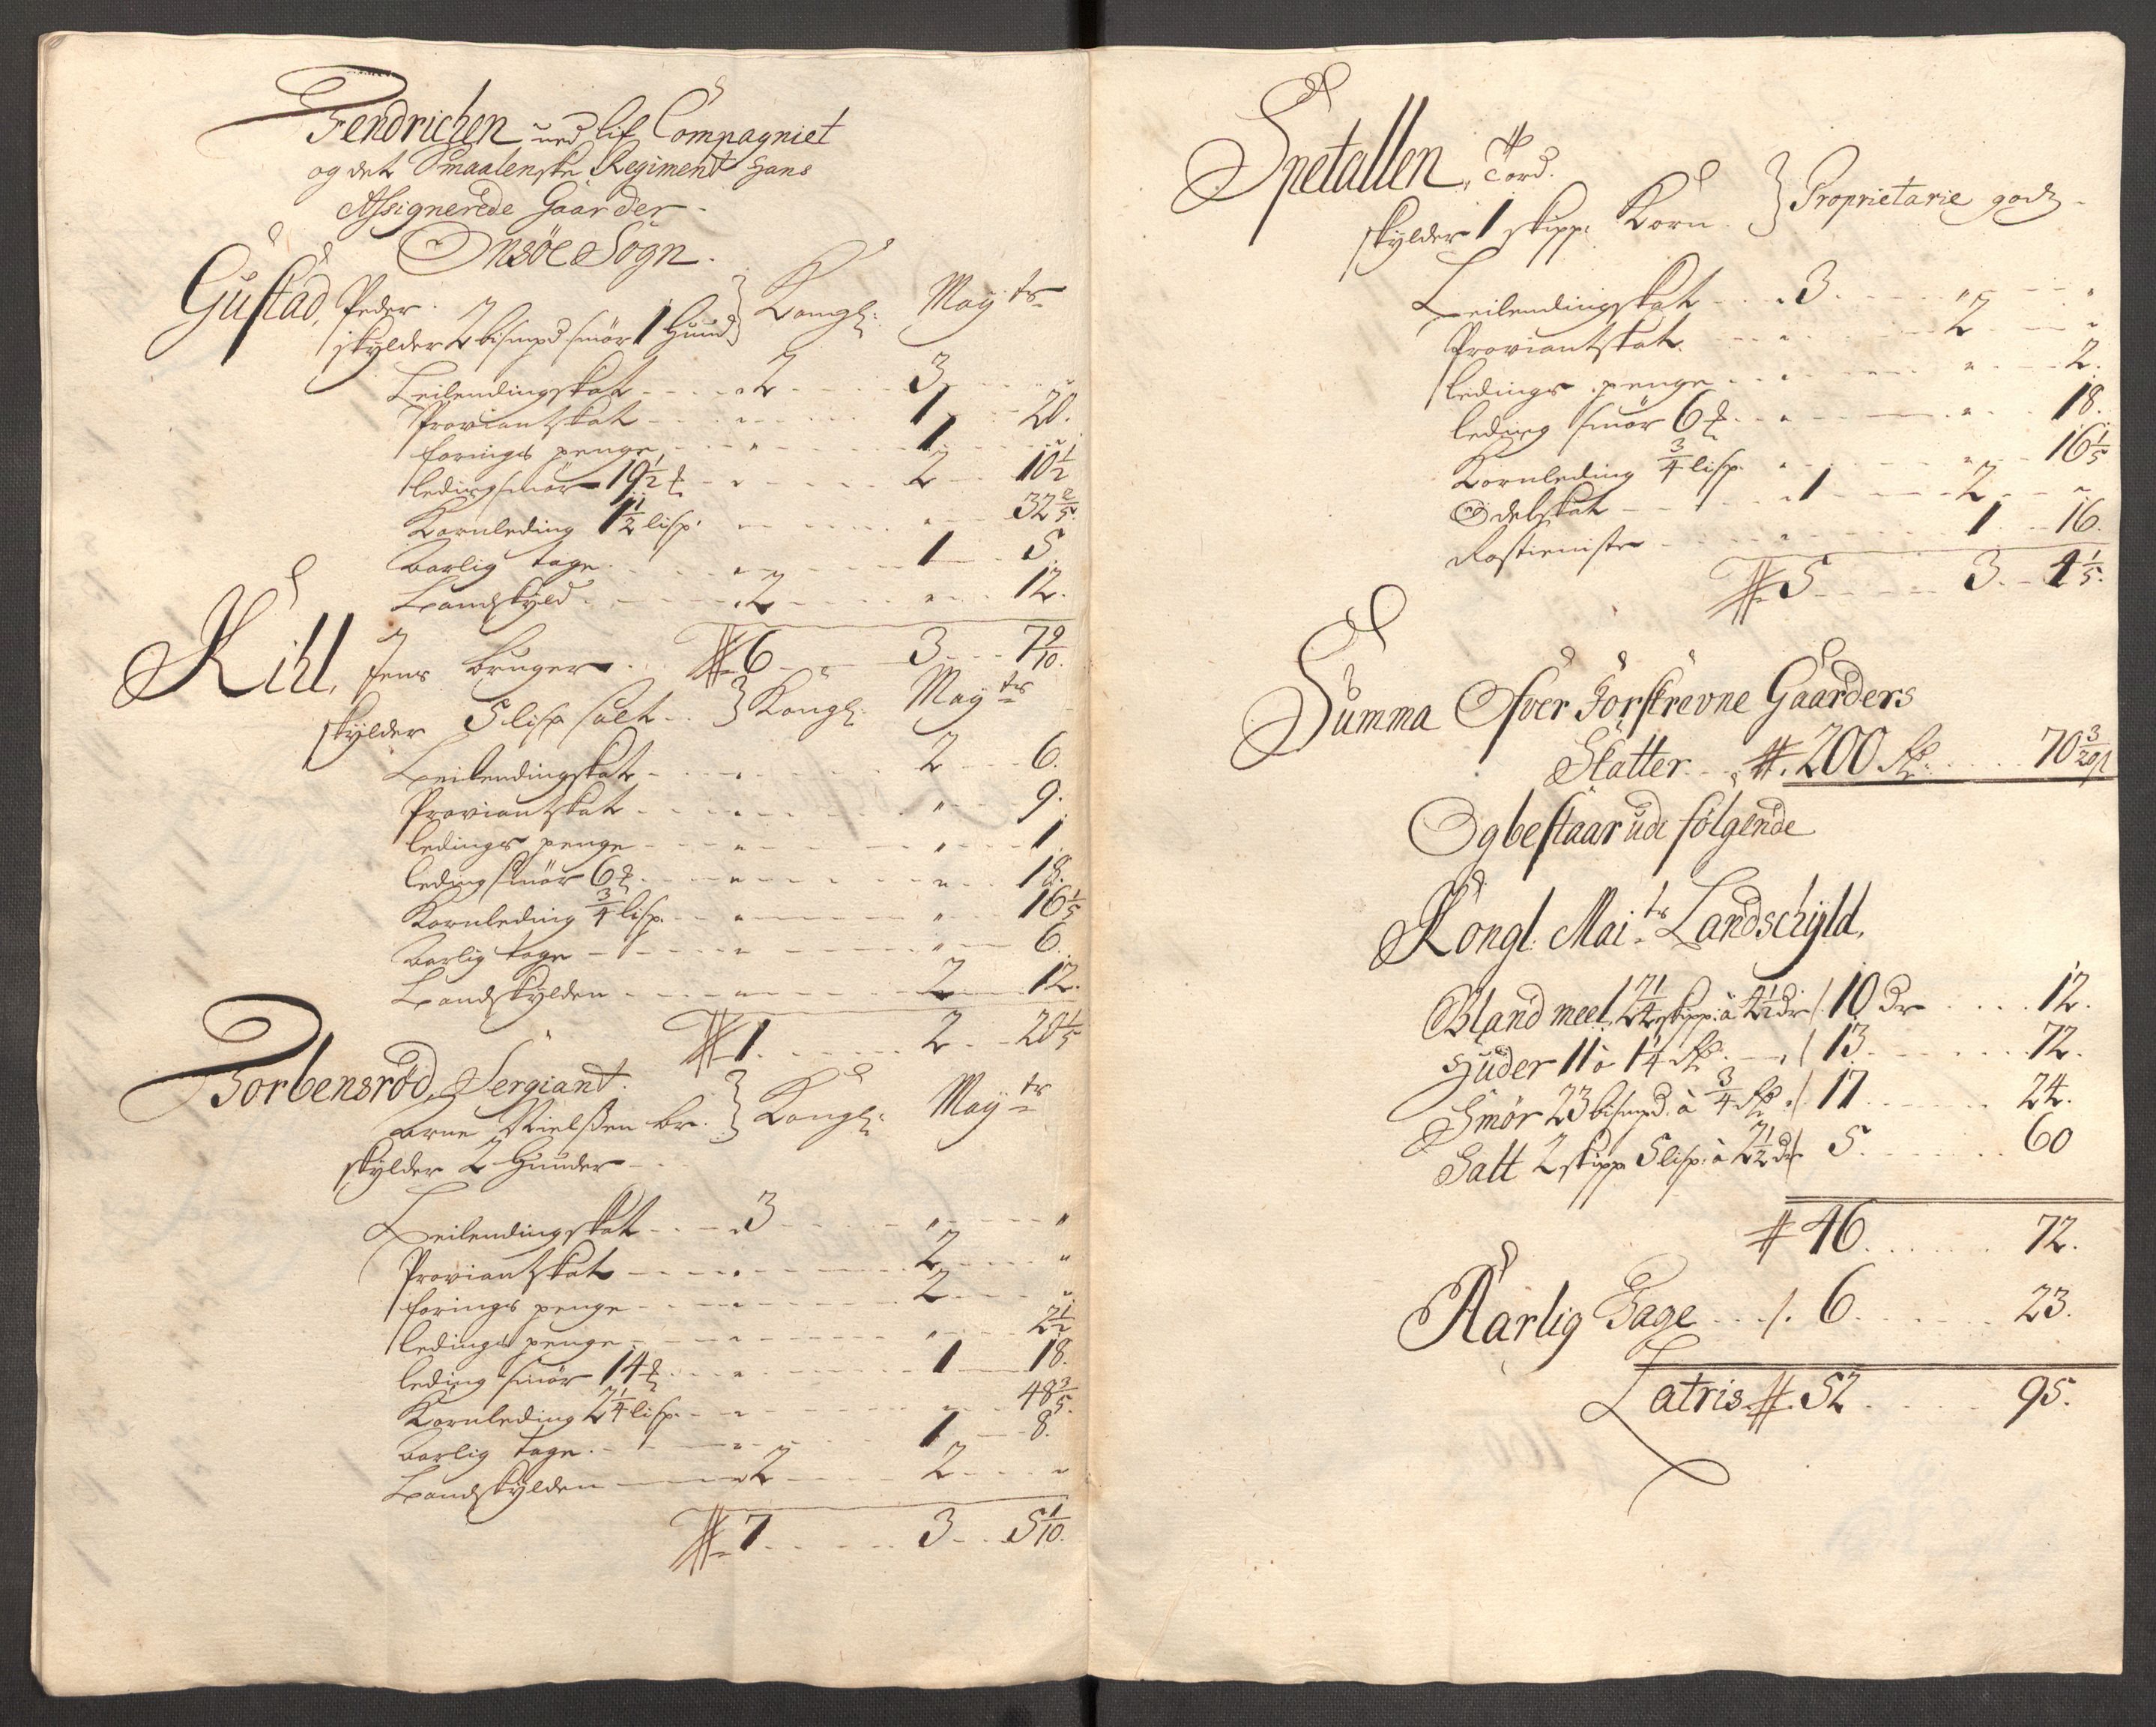 Fendrichen ved lif Compagniet
og det Smaalenske Regiment hans
Assignerede Gaarder
Onsöe Sogn.
Gustad, Peder.
skylder 2 bismpd smör 1 Huud } Kongl: Maÿts
Leilendingskat - - - 2 - - - 3 - - - "
Proviantskat - - - " - - - 1 - - 20.
forings penge - - - " - - - 1 - - - "
leding smör 19½ ℔ - - " - - - 2 - - 10½
Kornleding 1½ lisp. - - - - - " - - 32 2/5.
Aarlig tage. - - - " - - - 1 - - 5.
Landskyld. - - - 2 - - - " - - 12.
6 - - - 3 - - 7 9/10.
Kihl, Jens bruger.
skylder 5 lisp salt - - } Kongl: Maÿts
Leilendingskat - - - " - - - 2 - - - 6.
Proviantskat - - - " - - - " - - - 9.
ledings penge - - - " - - - " - - - 1
leding smör 6 ℔ - - - " - - - " - - 18.
Kornleding ¾ lisp. - - - " - - - " - - 16 1/5
Aarlig tage - - - " - - - " - - - 6.
Landskylden - - - " - - - 2 - - 12.
1. - - - 2 - - 20 1/5
Torbensröd, Sergiant.
Arne Nielssen br. } Kongl: Maÿts
skylder 2 Huuder - -
Leilendingskat - - - 3 - - - " - - - "
Proviantskat - - - " - - - 2 - - - "
forings penge - - - " - - - 2 - - - "
ledings penge - - - " - - - " - - 2½
leding smör 14 ℔ - - - " - - - 1 - - 18.
Kornleding 2¼ lisp. - - " - - - " - - 48 3/5.
Aarlig tage. - - - " - - - 1 - - - 8.
Landskylden - - - 2 - - - 2 - - - "
7. - - - 3 - - 5 1/10.
Spetallen, Tord.
skylder 1 skipp: Korn. } Proprietarie godz -
Leilendingskat - - - 3. - - - " - - - "
Proviantskat. - - - " - - - 2 - - - "
ledings penge - - - " - - - " - - - 2.
leding smör 6 ℔ - - " - - - " - - 18.
Kornleding ¾ lisp. " - - - " - - 16 1/5
Odelskat - - - 1 - - - 2 - - "
Rostieniste - - - " - - - 1 - - 16.
5 - - - 3. - 4 1/5.
Summa Ofver Forskrevne Gaarders
Skatter. - 200 Rd: - - - 70 3/20 ß
Og bestaar udi fölgende
Kongl. Maits Landschÿld,
Bland meel, 2¼ skipp: à 4½ dr /. 10 dr - - - 12.
Huder 11 à 1¼ Rd: - - /. 13. - - - 72.
Smör 23 bismpd. à ¾ Rd /. 17 - - - 24.
Salt 2 skipp 5 lisp: à 2½ dr /. 5. - - - 60
46. - - - 72.
Aarlig Tage - - /. 6. - - - 23.
Latris 52 - - - 95.